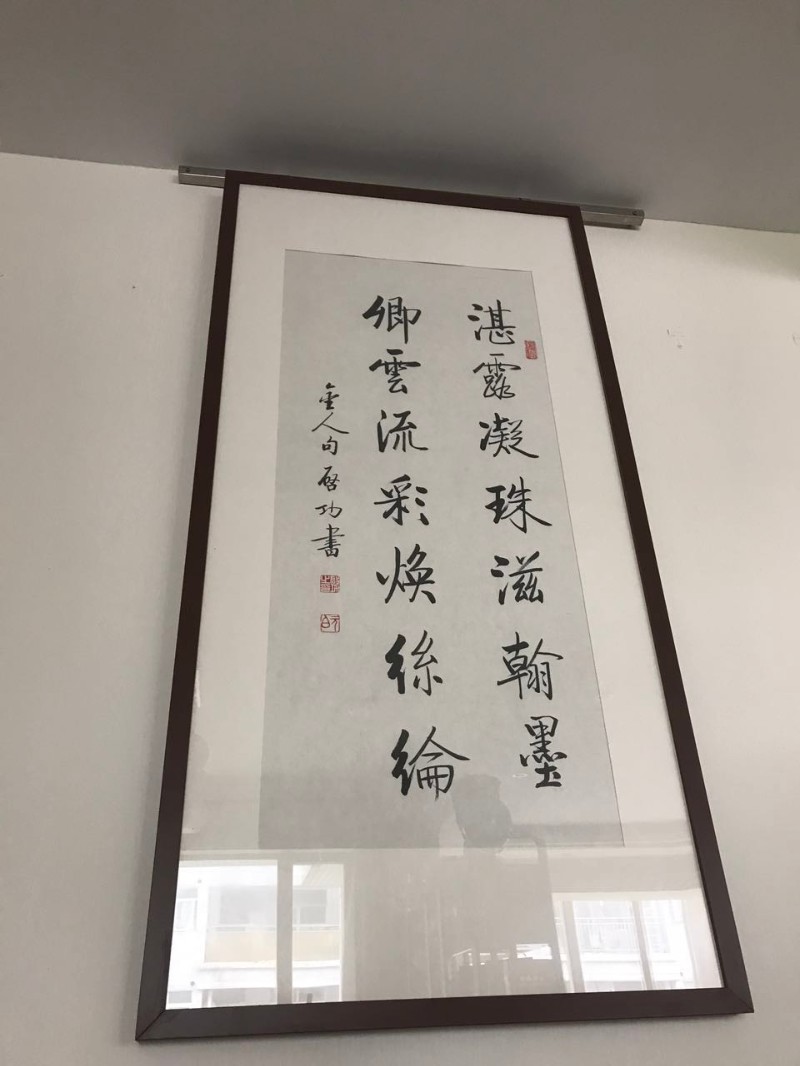 湛露凝珠滋翰墨
卿雲流彩焕絲綸
金人句啓功書